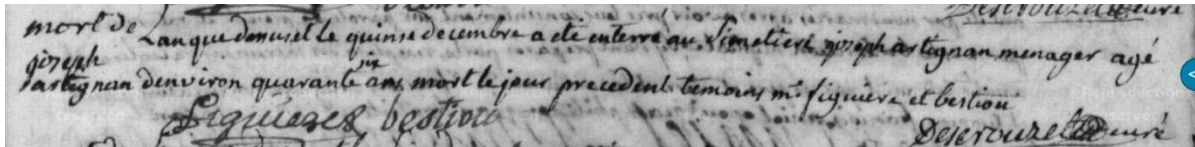 mort de
joseph
artignan
Lan que denus et le quinse decembre a été enterré au Simetiere joseph artignan menager agé
denviron quarante six ans mort le jour precedent temoins mrs figuiere et bestiou
Figuieres bestiou
Deserouzet curé